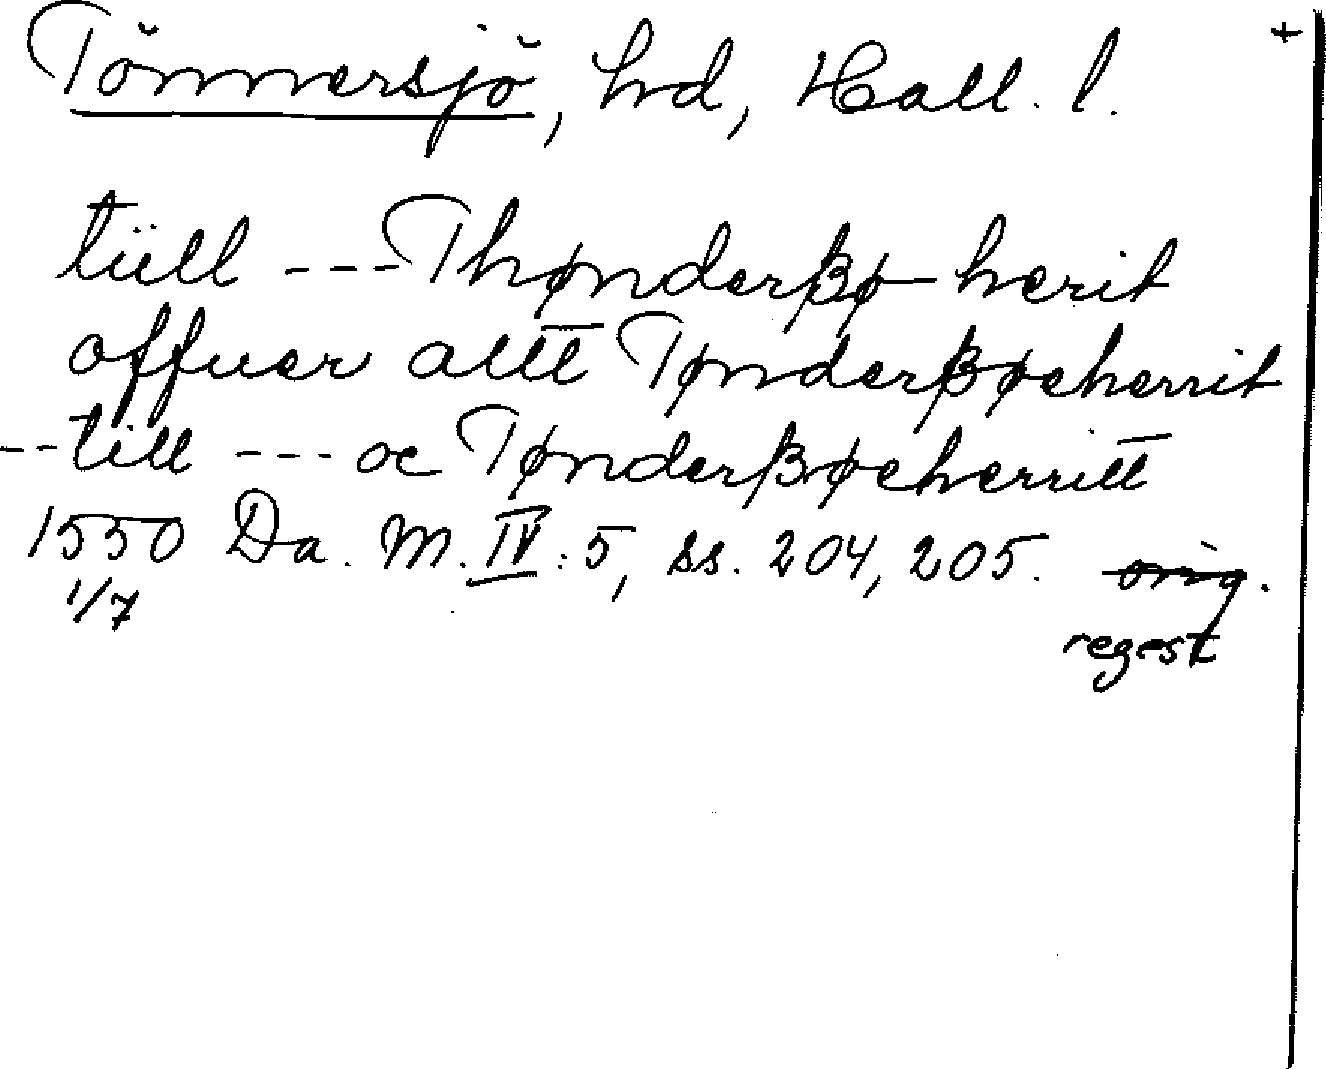 Tönnersjö, hd, Hall. l. +
tiill --- Thønderßø herit
offuer altt Tønderßøeherrit
-- till --- oc Tønderßøeherritt
1550 Da. M. IV: 5, ss. 204, 205. orig.
1/7
regest